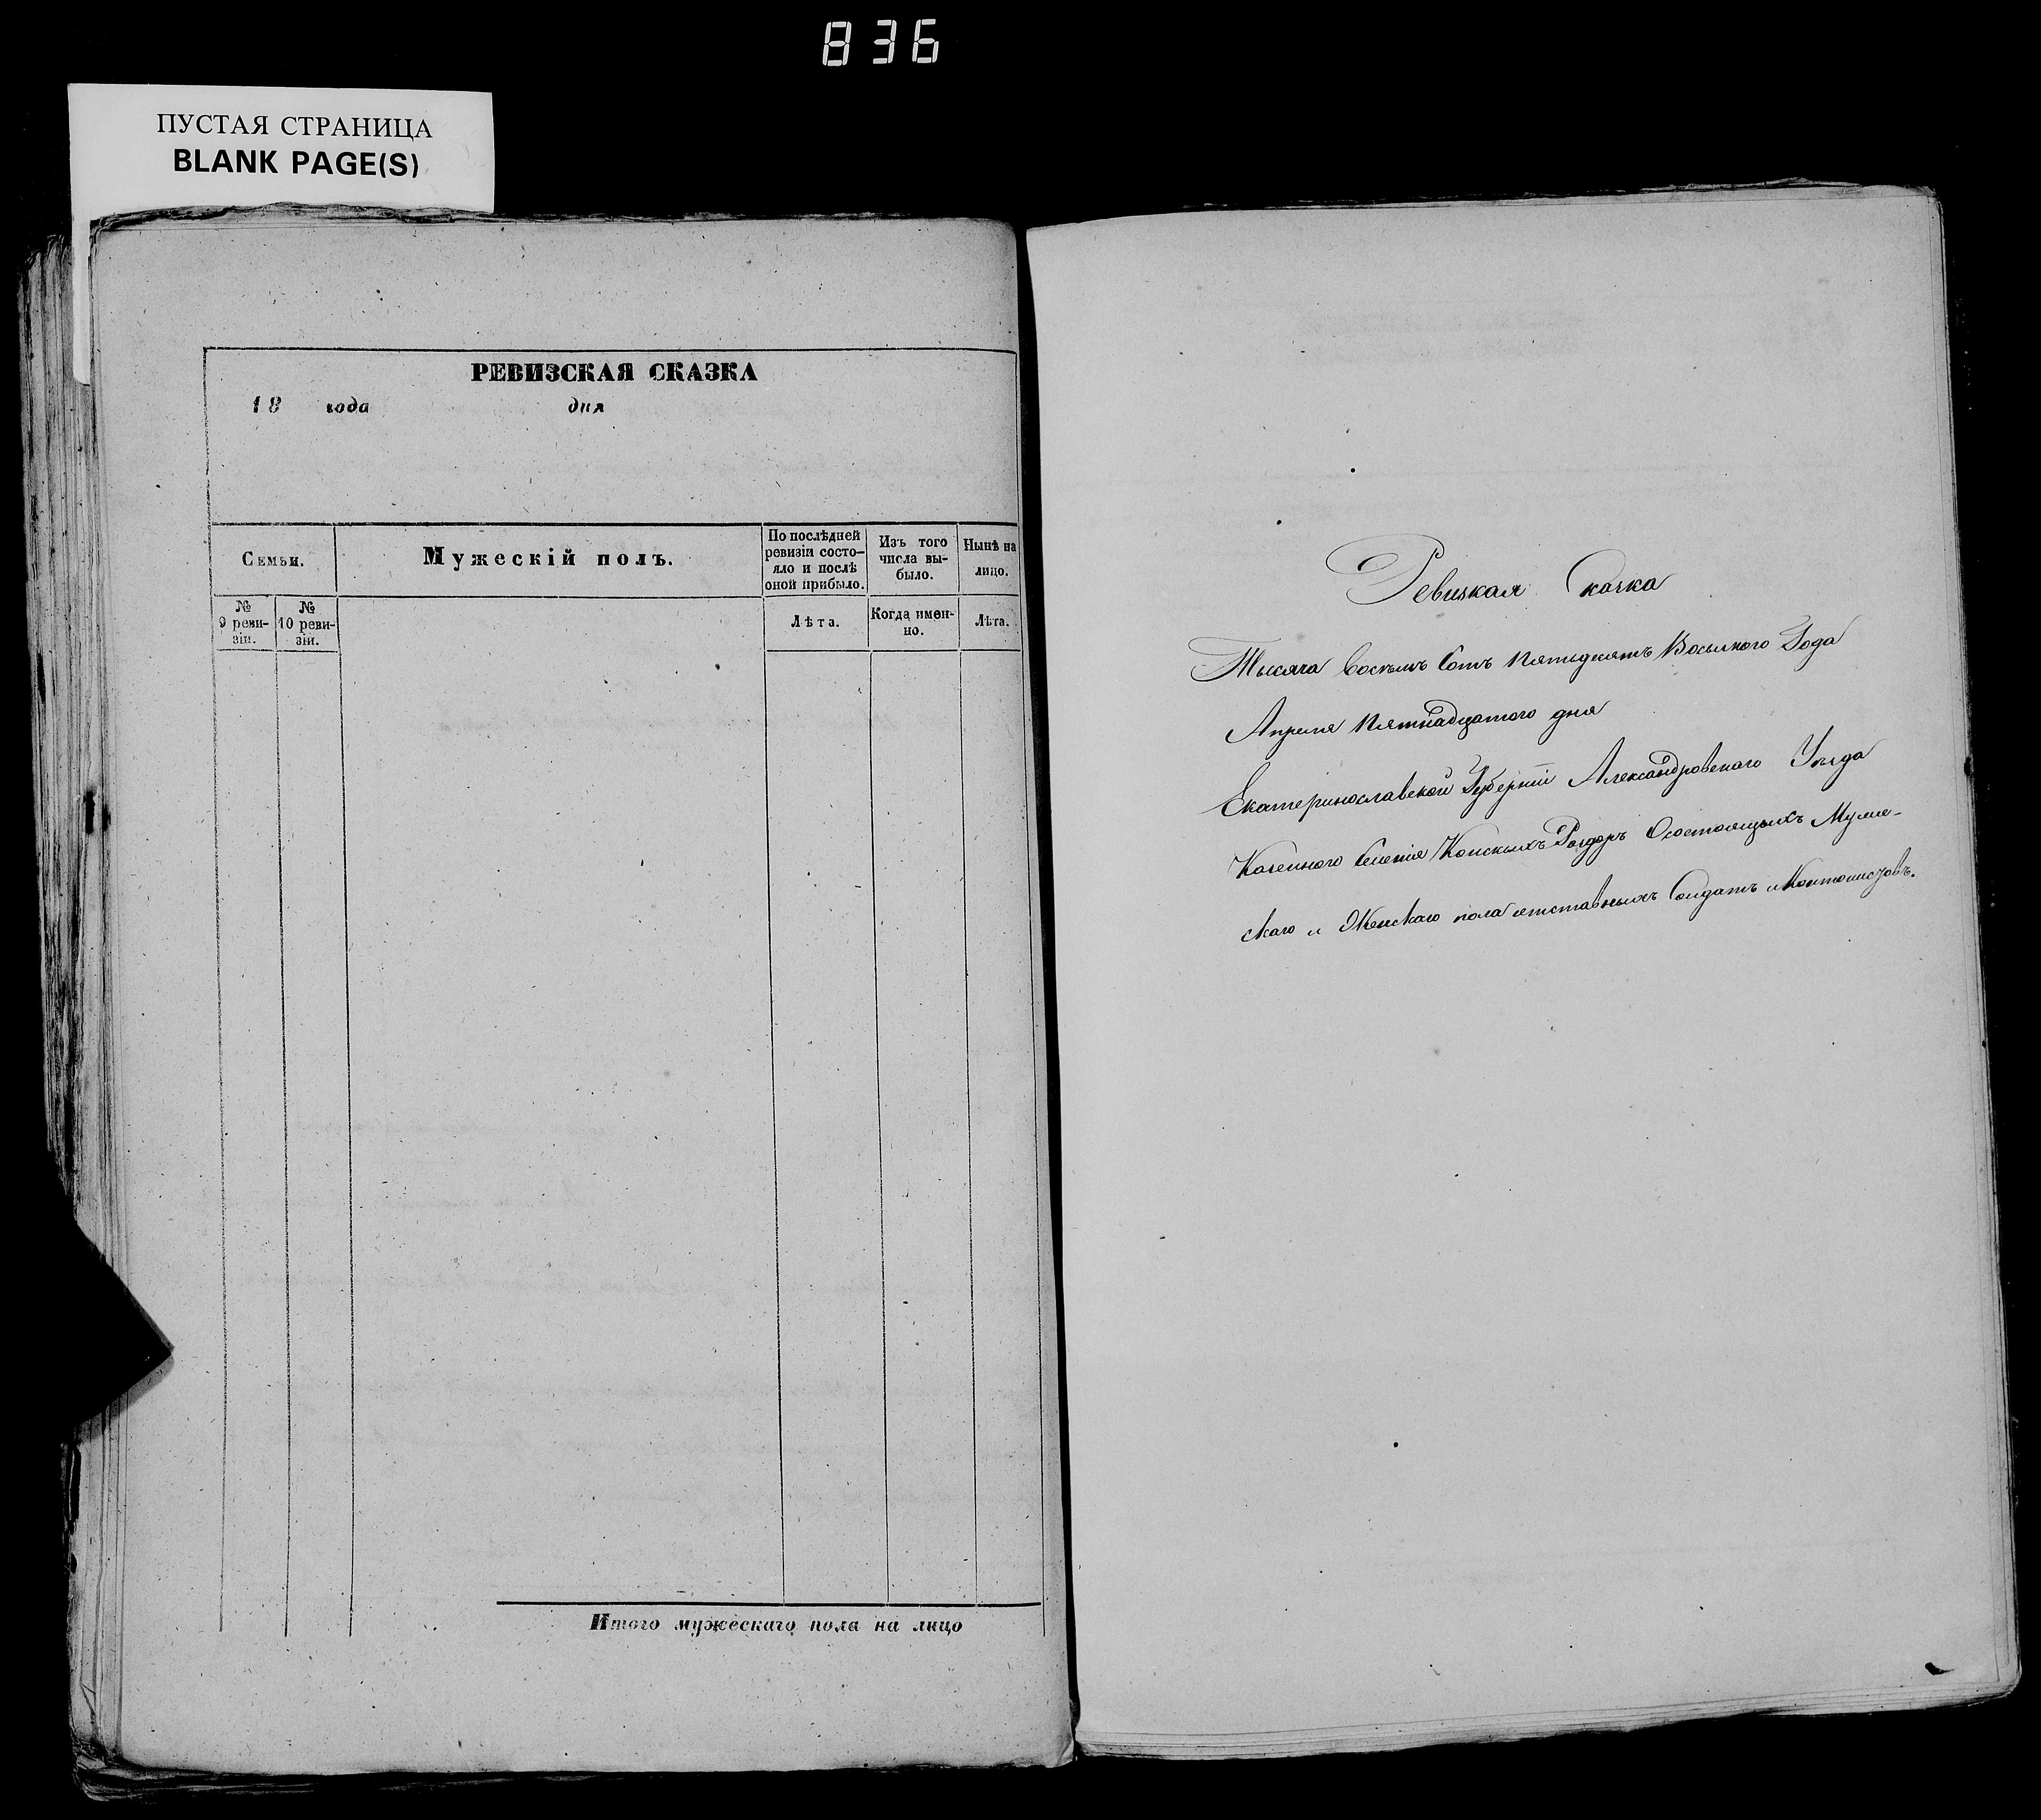 836
ПУСТАЯ СТРАНИЦА
BLANK PAGE(S)
РЕВИЗСКАЯ СКАЗКА
18 года дня
Семьи.
Мужескій полъ.
По послѣдней
ревизіи состо-
яло и послѣ
оной прибыло.
Изъ того
числа вы-
было.
Нынѣ на
лицо.
№
9 реви-
зіи.
№
10 реви-
зіи.
Лѣта.
Когда имен-
но.
Лѣта.
Итого мужескаго пола на лицо
Ревизкая Сказка
Тысяча восемь сотъ пятьдесятъ Восьмого Года
Апреля пятнадцатого дня
Екатеринославской Губерніи Александровского Уезда
Казенного Селенія Конскихъ Раздоръ Осостоящихъ Муже-
скаго и Женскаго пола отставныхъ Солдатъ и Кантонистовъ.